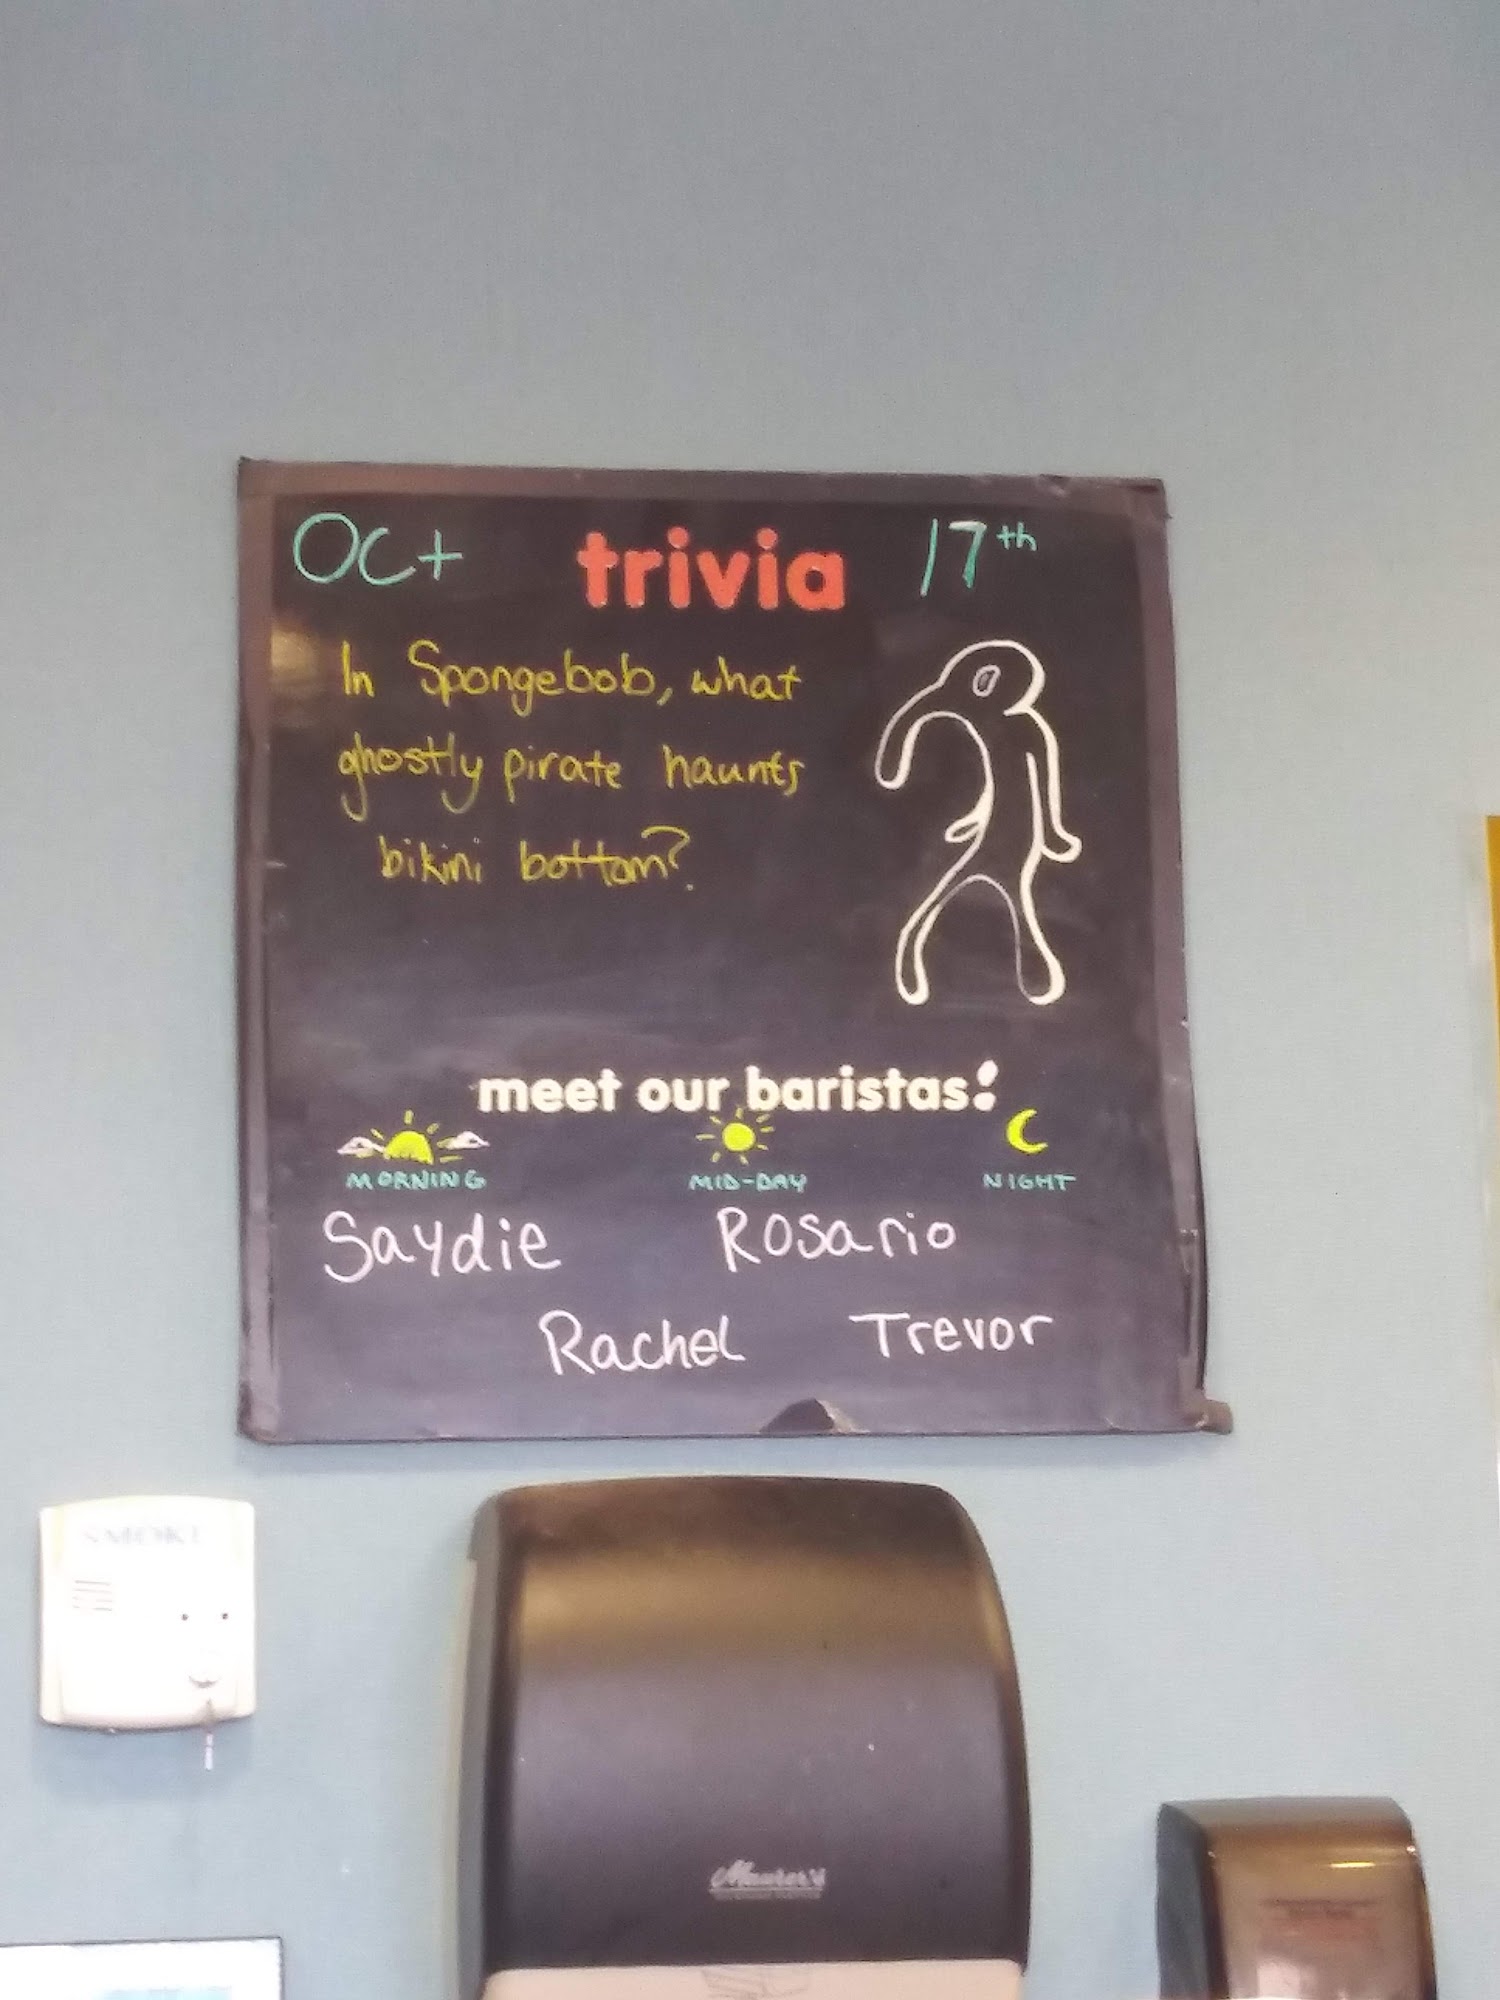 Oct trivia 17th
In Spongebob, what
ghostly pirate haunts
bikini bottom?
meet our baristas!
MORNING MID-DAY NIGHT
Saydie Rosario
Rachel Trevor
SMOKE
Maurer's